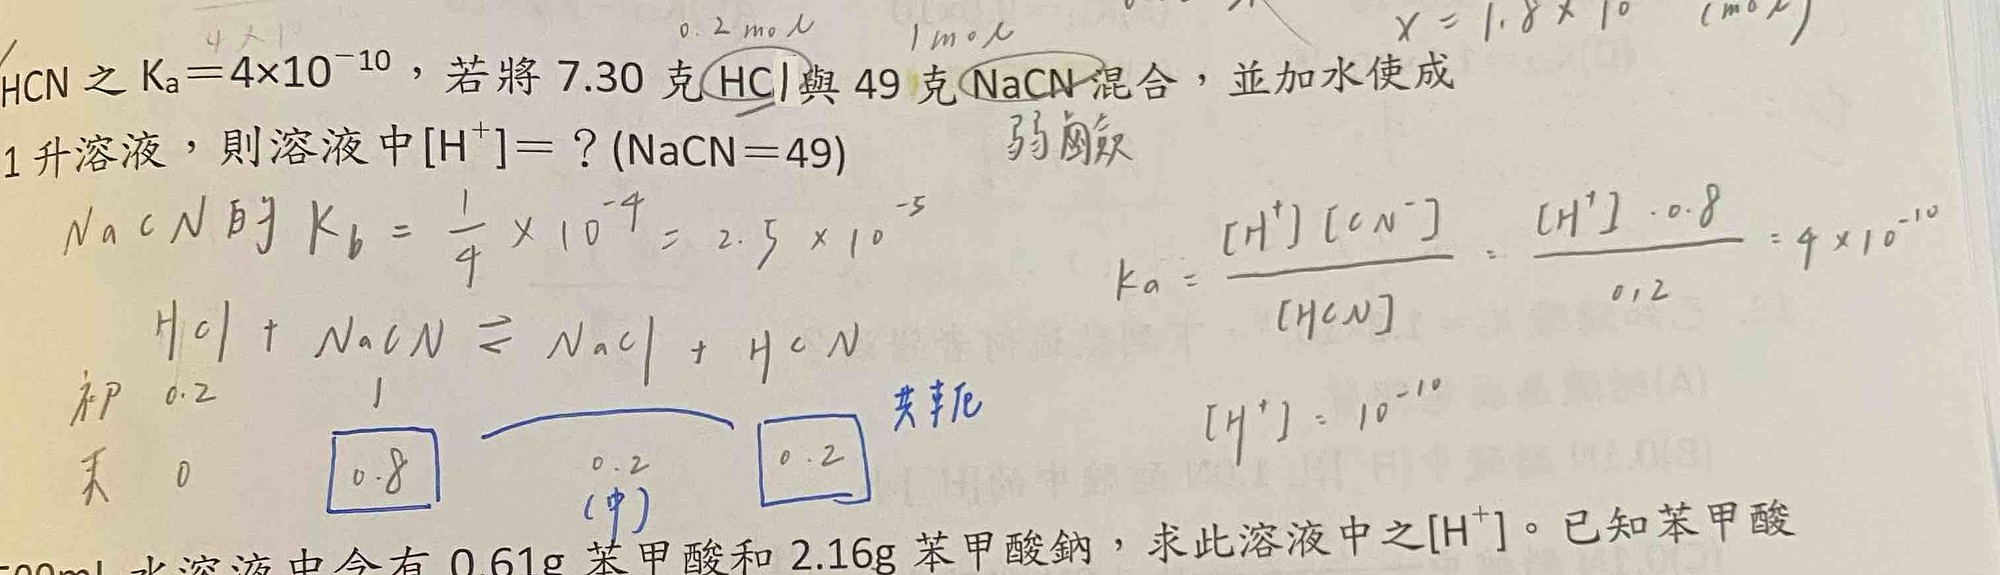 4×10
0.2 mol 1 mol x = 1.8 × 10 (mol)
HCN 之 Ka＝4×10⁻¹⁰，若將 7.30 克 HCl 與 49 克 NaCN 混合，並加水使成
1 升溶液，則溶液中[H⁺]＝？(NaCN＝49)
弱鹼
NaCN的 Kb = 1/4 × 10⁻⁴ = 2.5 × 10⁻⁵
Ka = [H⁺][CN⁻]/[HCN] = [H⁺]·0.8/0.2 = 4 × 10⁻¹⁰
HCl + NaCN ⇌ NaCl + HCN
初 0.2 1
共軛
[H⁺] = 10⁻¹⁰
末 0 0.8 0.2 0.2
(中)
水溶液中含有 0.61g 苯甲酸和 2.16g 苯甲酸鈉，求此溶液中之[H⁺]。已知苯甲酸